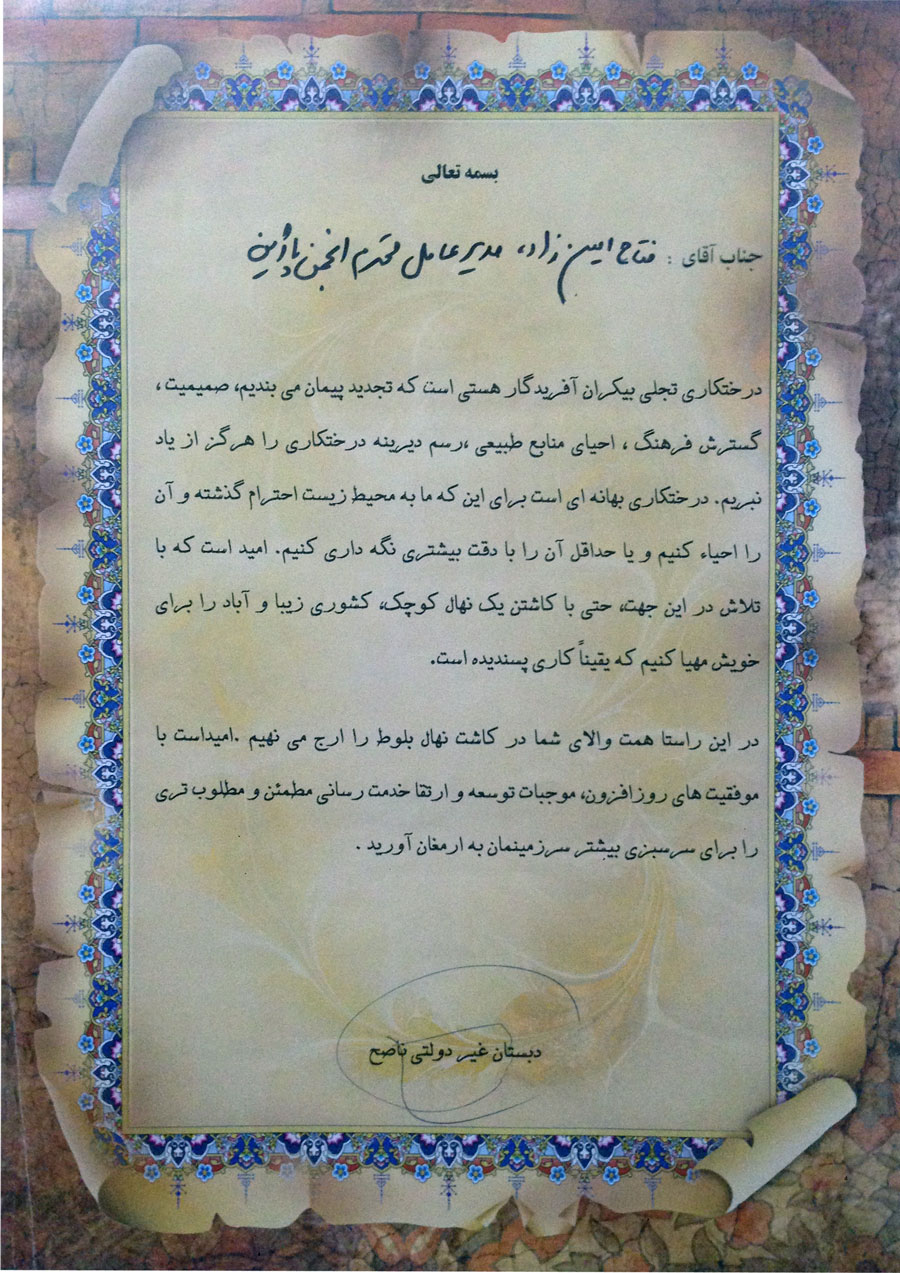 بسمه تعالی
جناب آقای : فتاح امین زاده، مدیر عامل محترم انجمن پاژین
درختکاری تجلی بیکران آفریدگار هستی است که تجدید پیمان می بندیم، صمیمیت ،
گسترش فرهنگ ، احیای منابع طبیعی ،رسم دیرینه درختکاری را هرگز از یاد
نبریم. درختکاری بهانه ای است برای این که ما به محیط زیست احترام گذشته و آن
را احیاء کنیم و یا حداقل آن را با دقت بیشتری نگه داری کنیم. امید است که با
تلاش در این جهت، حتی با کاشتن یک نهال کوچک، کشوری زیبا و آباد را برای
خویش مهیا کنیم که یقیناً کاری پسندیده است.
در این راستا همت والای شما در کاشت نهال بلوط را ارج می نهیم .امیداست با
موفقیت های روزافزون، موجبات توسعه و ارتقا خدمت رسانی مطمئن و مطلوب تری
را برای سرسبزی بیشتر سرزمینمان به ارمغان آورید .
دبستان غیر دولتی ناصح